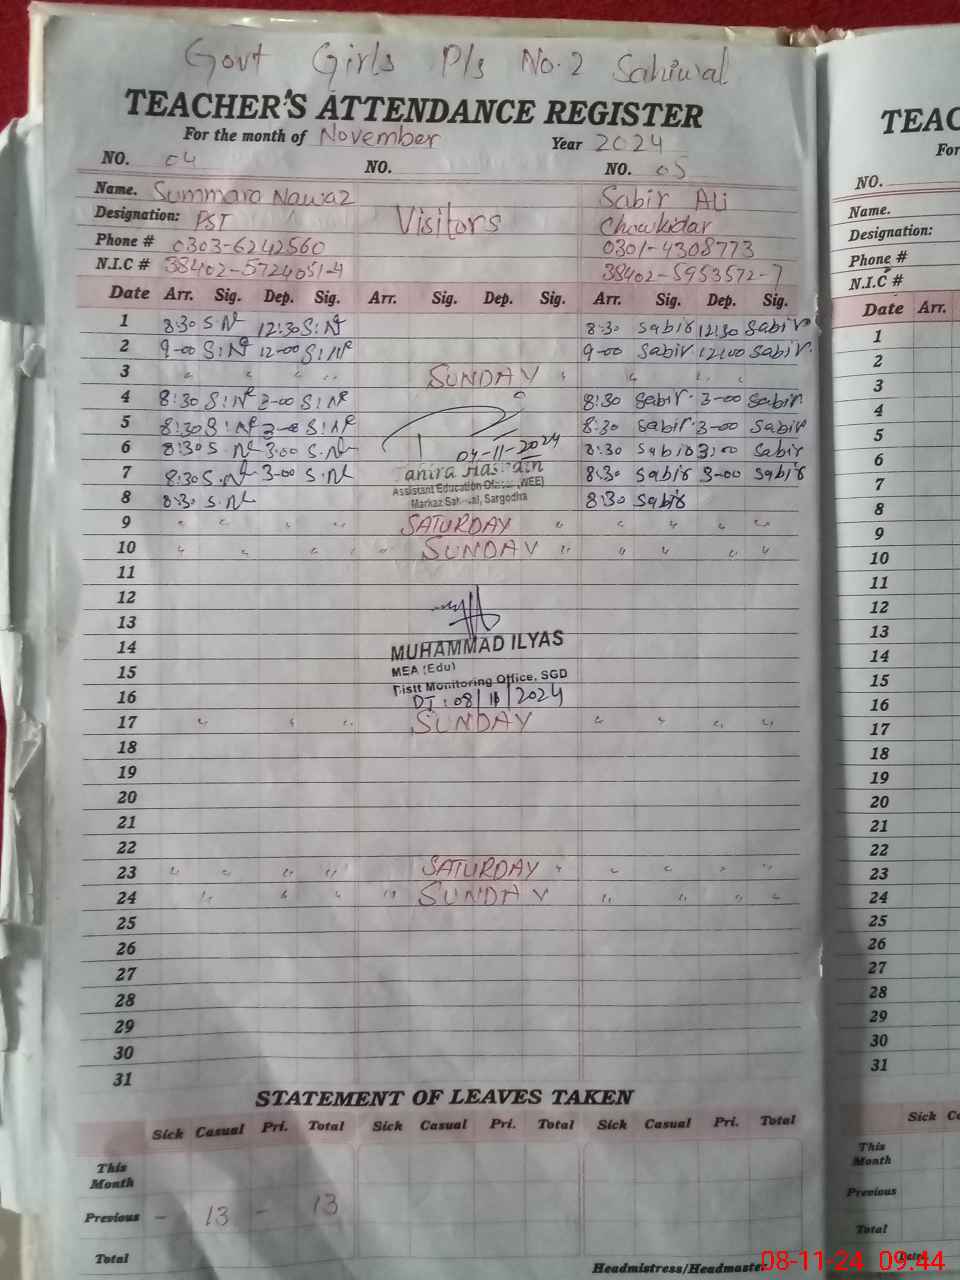 Govt Girls P/s No.2 Sahiwal
TEACHER'S ATTENDANCE REGISTER
For the month of November Year 2024
NO. 04 NO. NO. 05
Name. Summara Nawaz Sabir Ali
Designation: PST Visitors Chowkidar
Phone # 0303-6242560 0301-4308773
N.I.C # 38402-5724051-4 38402-5953572-7
Date Arr. Sig. Dep. Sig. Arr. Sig. Dep. Sig. Arr. Sig. Dep. Sig.
1 8:30 S.N 12:30 S:N 8:30 Sabir 12:30 Sabir
2 9-00 S:N 12-00 S:N 9-00 Sabir 12:00 Sabir
3 " " " " SUNDAY " " " "
4 8:30 S:N 3-00 S:N 8:30 Sabir 3-00 Sabir
5 8:30 S:N 3-00 S:N 8:30 Sabir 3-00 Sabir
6 8:30 S.N 3:00 S.N 07-11-2024 8:30 Sabir 3:00 Sabir
7 8:30 S.N 3-00 S.N 8:30 Sabir 3-00 Sabir
Assistant Education (WEE)
8 8:30 S.N Markaz Sargodha 8:30 Sabir
9 " " " " SATURDAY " " " " "
10 " " " " " SUNDAY " " " " "
11
12
13
14 MUHAMMAD ILYAS
15 MEA (Edu)
Distt Monitoring Office, SGD
16 DT: 08/11/2024
17 " " " SUNDAY " " " "
18
19
20
21
22
23 " " " " SATURDAY " " " " "
24 " " " " SUNDAY " " " "
25
26
27
28
29
30
31
STATEMENT OF LEAVES TAKEN
Sick Casual Pri. Total Sick Casual Pri. Total Sick Casual Pri. Total
This Month
Previous - 13 - 13
Total
Headmistress/Headmaster
TEAC
For
NO.
Name.
Designation:
Phone #
N.I.C #
Date Arr.
1
2
3
4
5
6
7
8
9
10
11
12
13
14
15
16
17
18
19
20
21
22
23
24
25
26
27
28
29
30
31
Sick
This Month
Previous
Total
Date
08-11-24 09:44